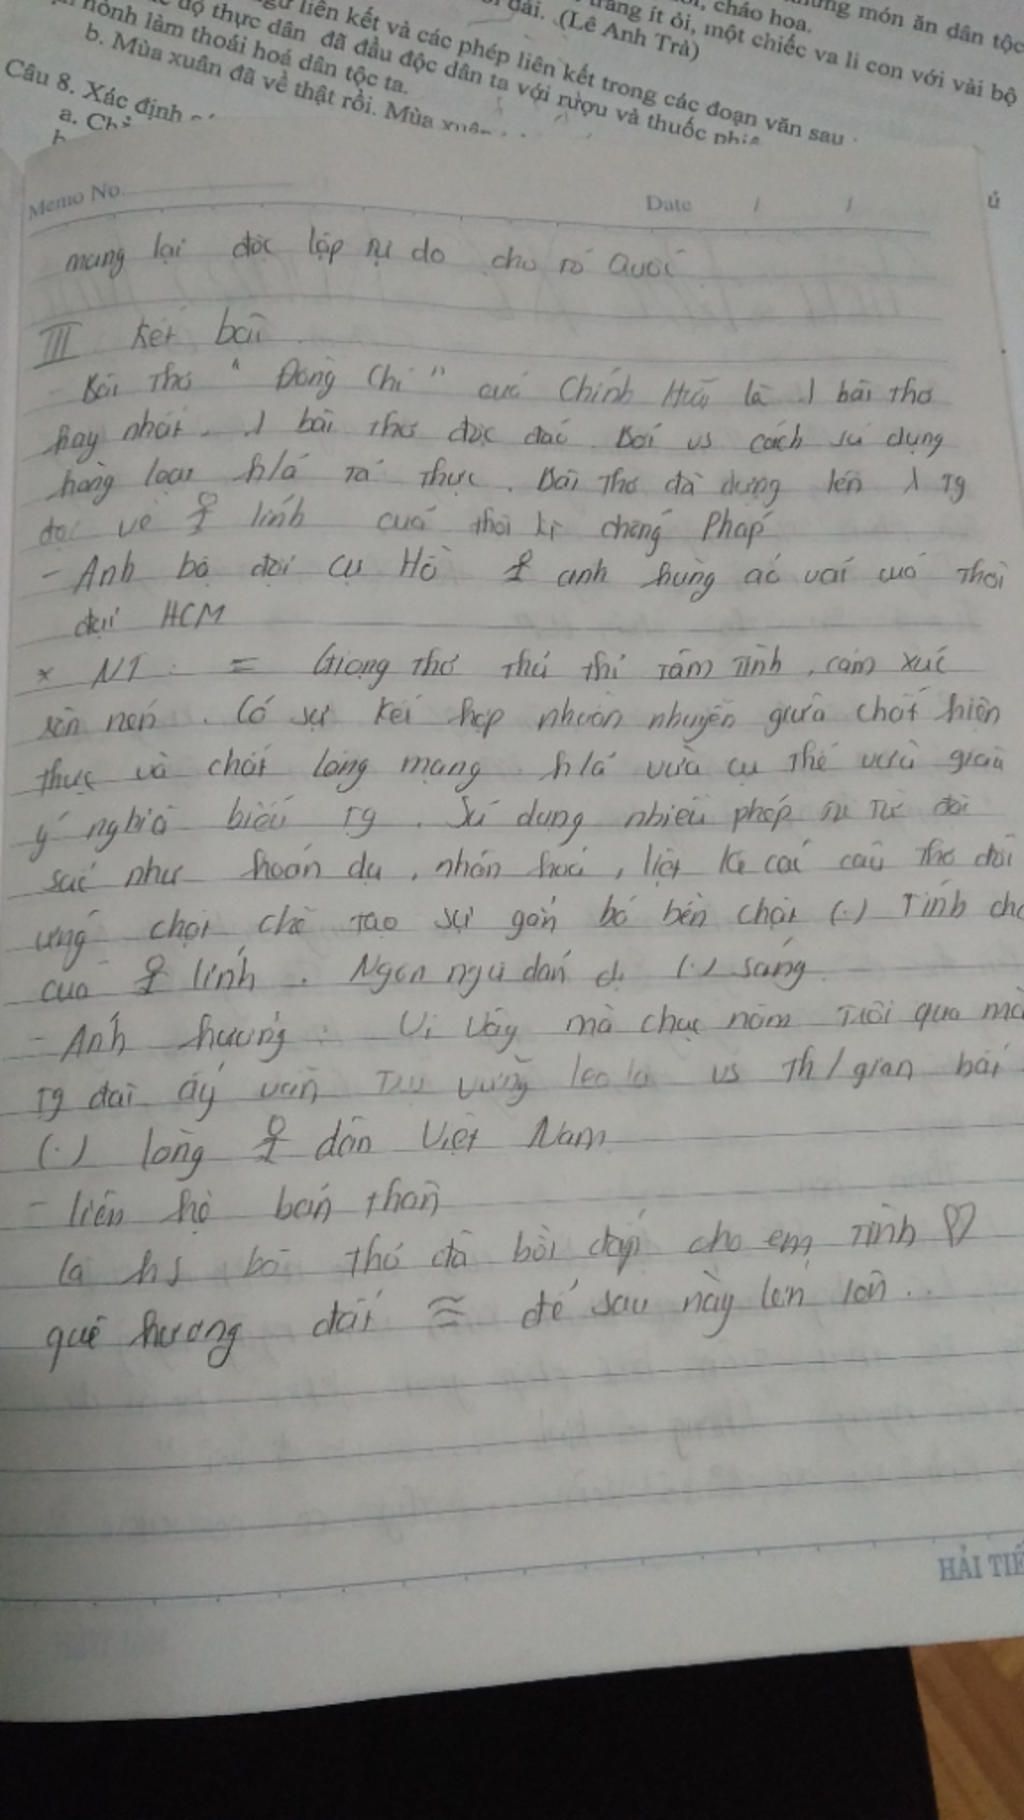 những món ăn dân tộc
cháo hoa.
trang ít ỏi, một chiếc va li con với vài bộ
dài. (Lê Anh Trà)
liên kết và các phép liên kết trong các đoạn văn sau
độ thực dân đã đầu độc dân ta với rượu và thuốc
nònh làm thoái hoá dân tộc ta.
b. Mùa xuân đã về thật rồi. Mùa
Câu 8. Xác định
a.
Memo No.
Date / /
mang lại độc lập tự do cho tổ Quốc
III Kết bài
- Bài Thơ " Đồng Chí " của Chính Hữu là 1 bài thơ
hay nhất. 1 bài thơ độc đáo. Bởi vs cách sử dụng
hàng loạt h/ả tả thực. Bài Thơ đã dựng lên 1 Tg
đẹp về ♀ lính của thời kì chống Pháp
- Anh bộ đội cụ Hồ ♀ anh hùng áo vải của Thời
đại HCM
* NT: = Giọng Thơ thủ thỉ tâm Tình, cảm xúc
dồn nén. Có sự kết hợp nhuần nhuyễn giữa chất hiện
thực và chất lãng mạng h/ả vừa cụ thể vừa giàu
ý nghĩa biểu Tg. Sử dụng nhiều phép tu Từ đặc
sắc như hoán dụ, nhân hoá, liệt kê các câu Thơ đối
ứng chọi chẽ Tạo sự gắn bó bền chặt (.) Tình
của ♀ lính. Ngôn ngữ dản dị (.) sáng
- Ảnh hưởng: Vì Vậy mà chục năm Tuổi qua mà
Tg đài ấy vẫn vững vs Th/gian
(.) lòng ♀ dân Việt Nam
- liên hệ bản thân
là hs bài thơ đã bồi đắp cho em Tình ♡
quê hương đất ≈ để sau này lớn lên.
HẢI TIẾ